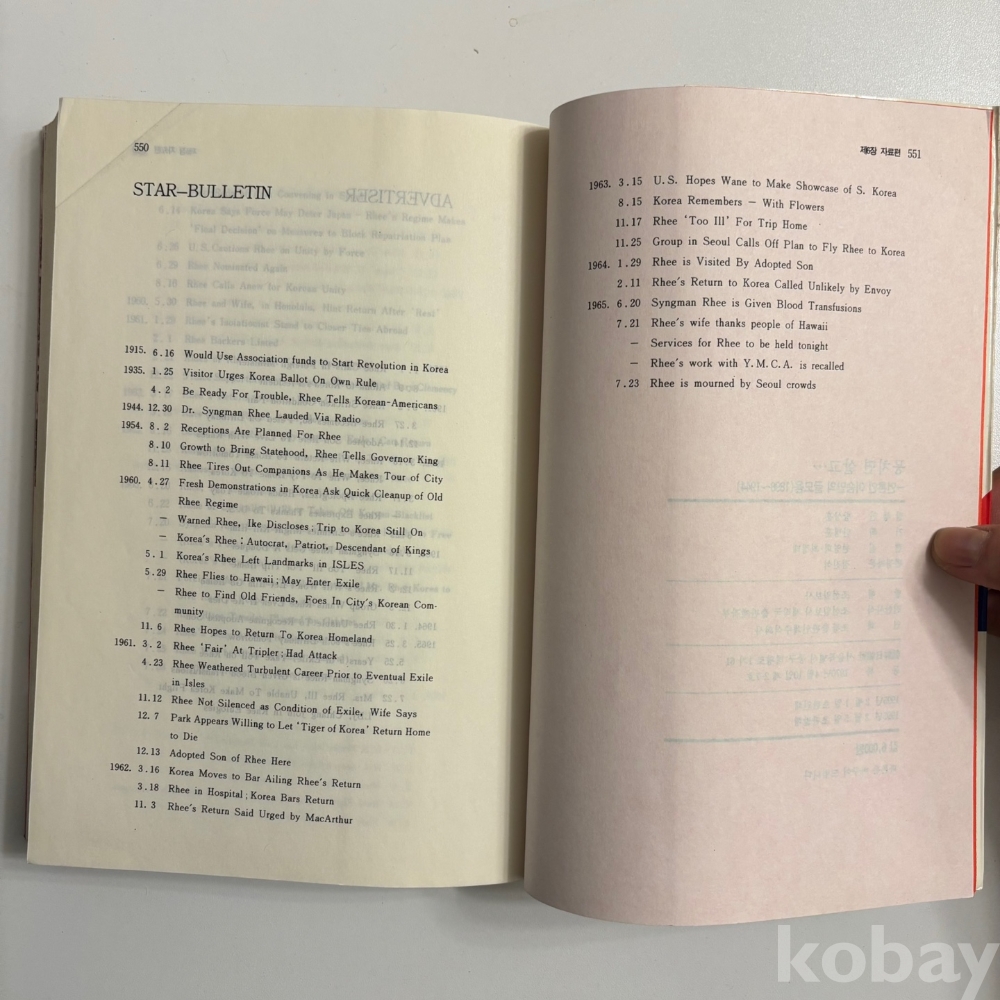 550
STAR-BULLETIN
1915. 6.16 Would Use Association funds to Start Revolution in Korea
1935. 1.25 Visitor Urges Korea Ballot On Own Rule
4. 2 Be Ready For Trouble, Rhee Tells Korean-Americans
1944. 12.30 Dr. Syngman Rhee Lauded Via Radio
1954. 8. 2 Receptions Are Planned For Rhee
8.10 Growth to Bring Statehood, Rhee Tells Governor King
8.11 Rhee Tires Out Companions As He Makes Tour of City
1960. 4.27 Fresh Demonstrations in Korea Ask Quick Cleanup of Old
Rhee Regime
— Warned Rhee, Ike Discloses; Trip to Korea Still On
— Korea's Rhee: Autocrat, Patriot, Descendant of Kings
5. 1 Korea's Rhee Left Landmarks in ISLES
5.29 Rhee Flies to Hawaii; May Enter Exile
— Rhee to Find Old Friends, Foes In City's Korean Com-
munity
11. 6 Rhee Hopes to Return To Korea Homeland
1961. 3. 2 Rhee 'Fair' At Tripler: Had Attack
4.23 Rhee Weathered Turbulent Career Prior to Eventual Exile
in Isles
11.12 Rhee Not Silenced as Condition of Exile, Wife Says
12. 7 Park Appears Willing to Let 'Tiger of Korea' Return Home
to Die
12.13 Adopted Son of Rhee Here
1962. 3.16 Korea Moves to Bar Ailing Rhee's Return
3.18 Rhee in Hospital; Korea Bars Return
11. 3 Rhee's Return Said Urged by MacArthur
제6장 자료편 551
1963. 3.15 U.S. Hopes Wane to Make Showcase of S. Korea
8.15 Korea Remembers — With Flowers
11.17 Rhee 'Too Ill' For Trip Home
11.25 Group in Seoul Calls Off Plan to Fly Rhee to Korea
1964. 1.29 Rhee is Visited By Adopted Son
2.11 Rhee's Return to Korea Called Unlikely by Envoy
1965. 6.20 Syngman Rhee is Given Blood Transfusions
7.21 Rhee's wife thanks people of Hawaii
— Services for Rhee to be held tonight
— Rhee's work with Y.M.C.A. is recalled
7.23 Rhee is mourned by Seoul crowds
kobay